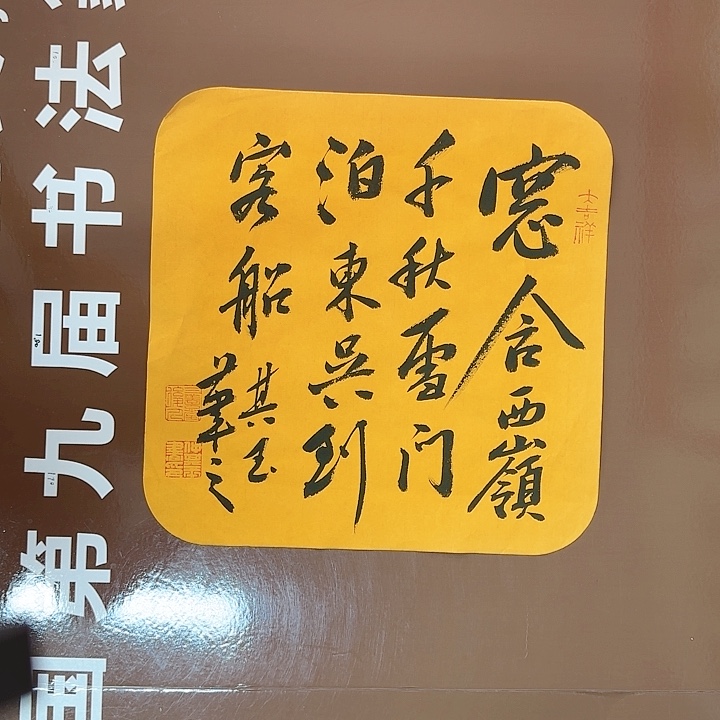 大吉祥
窓含西嶺
千秋雪门
泊東吳到
客船
其玉
之
国第九届书法